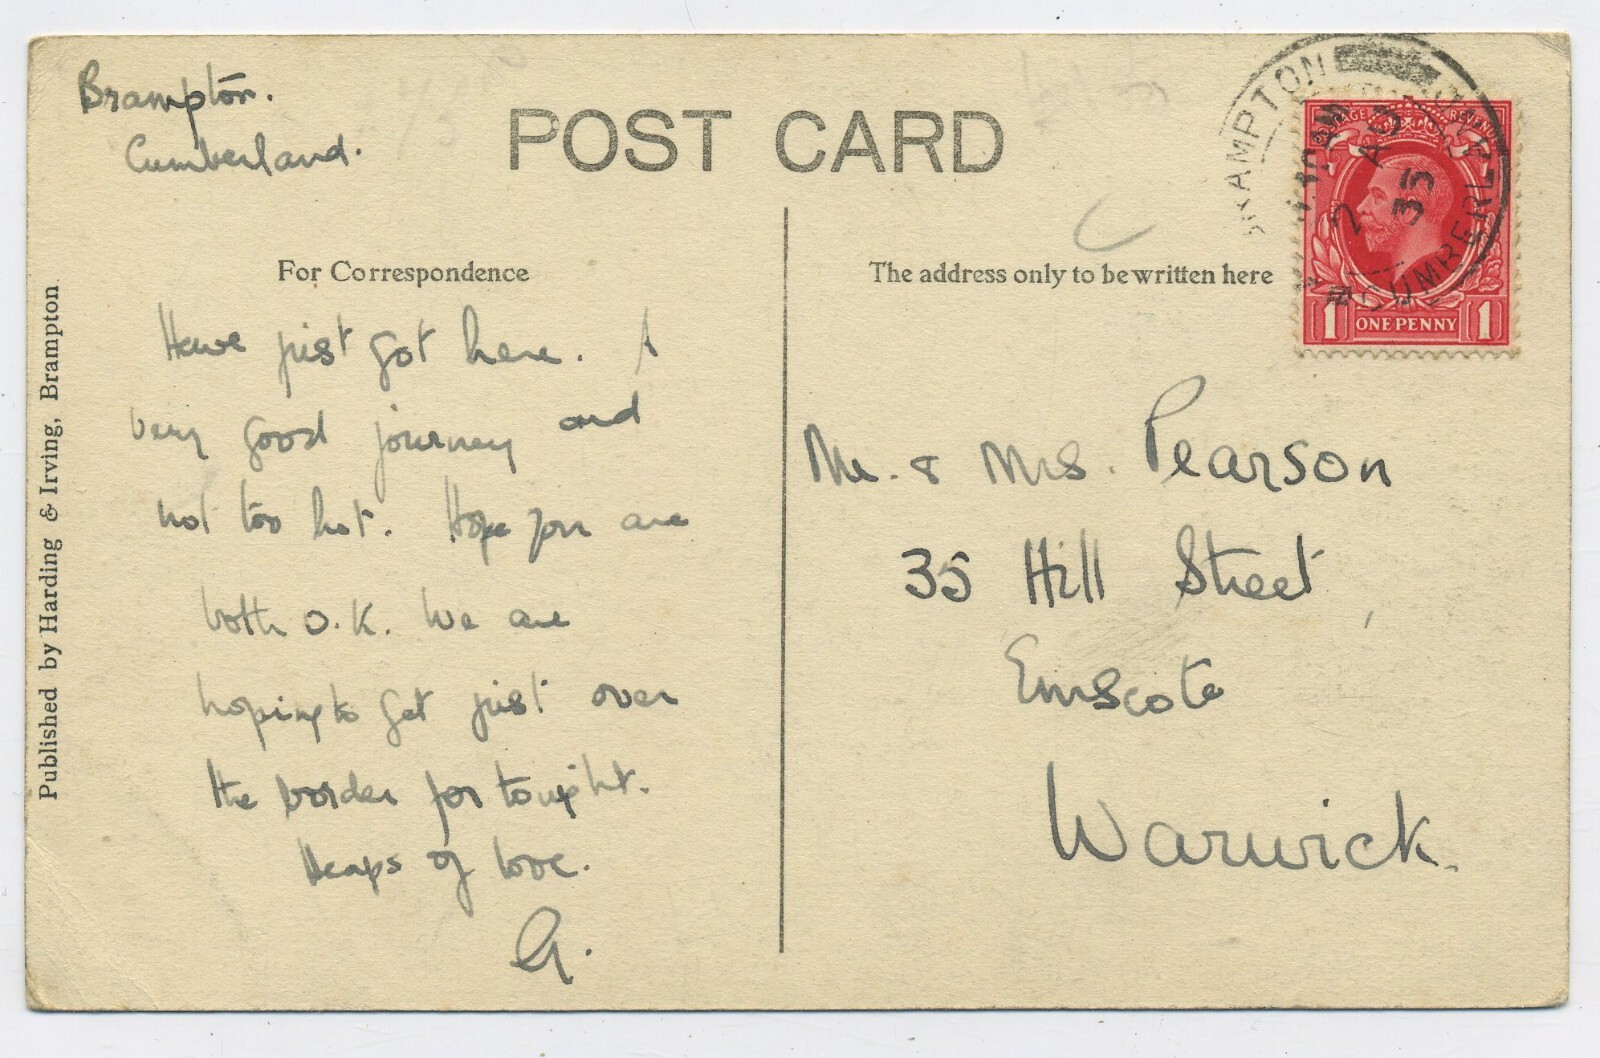 Brampton.
Cumberland.
POST CARD
For Correspondence
The address only to be written here
Have just got here. A
very good journey and
not too hot. Hope you are
both O.K. We are
hoping to get just over
the border for tonight.
Heaps of love.
G.
Mr. & Mrs. Pearson
35 Hill Street
Emscote
Warwick.
Published by Harding & Irving, Brampton
BRAMPTON
2 AU
35
CUMBERLAND
POSTAGE REVENUE
1 ONE PENNY 1